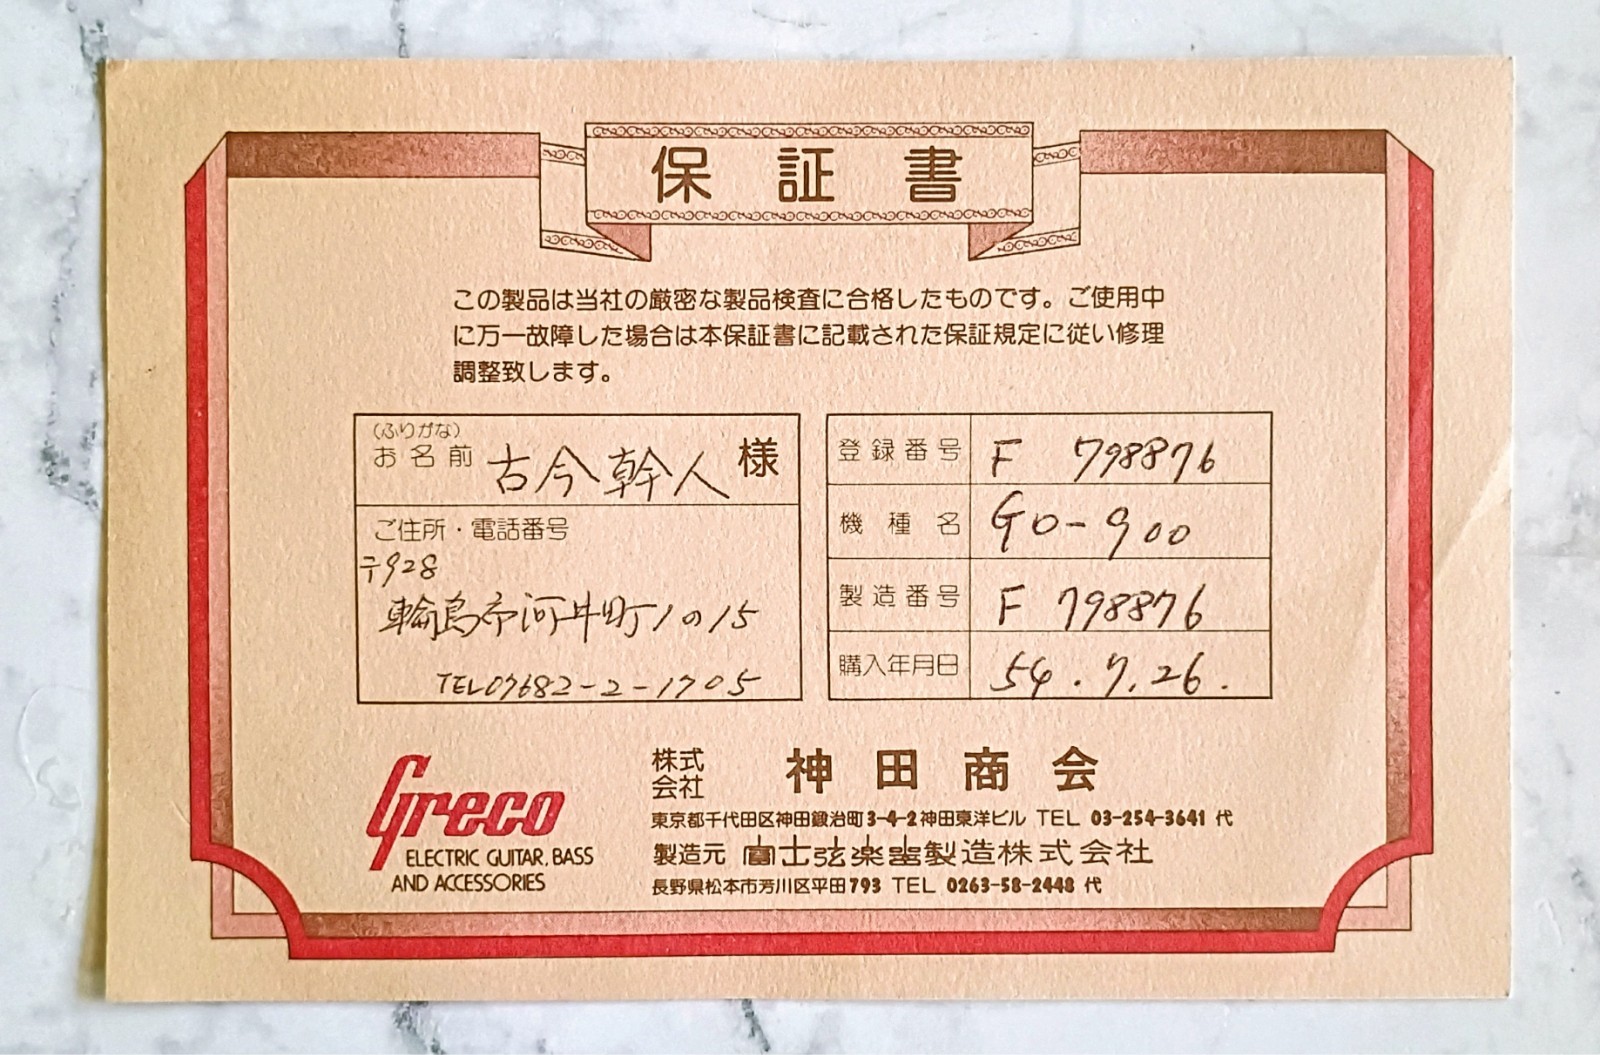 保証書
この製品は当社の厳密な製品検査に合格したものです。ご使用中
に万一故障した場合は本保証書に記載された保証規定に従い修理
調整致します。
(ふりがな)
お名前 古今幹人 様
ご住所・電話番号
〒928
輪島市河井町1の15
TEL07682-2-1705
登録番号 F 798876
機種名 GO-900
製造番号 F 798876
購入年月日 54.7.26.
Greco
ELECTRIC GUITAR, BASS
AND ACCESSORIES
株式会社 神田商会
東京都千代田区神田鍛冶町3-4-2神田東洋ビル TEL 03-254-3641 代
製造元 富士弦楽器製造株式会社
長野県松本市芳川区平田793 TEL 0263-58-2448 代